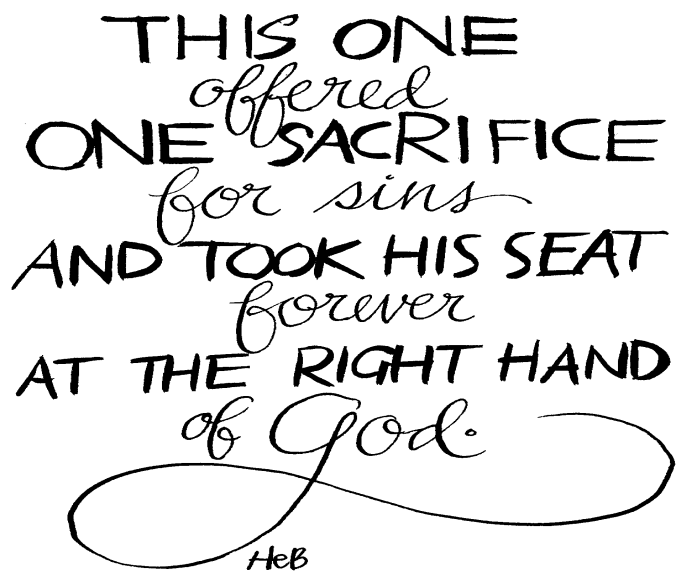 THIS ONE
offered
ONE SACRIFICE
for sins
AND TOOK HIS SEAT
forever
AT THE RIGHT HAND
of God.
HeB